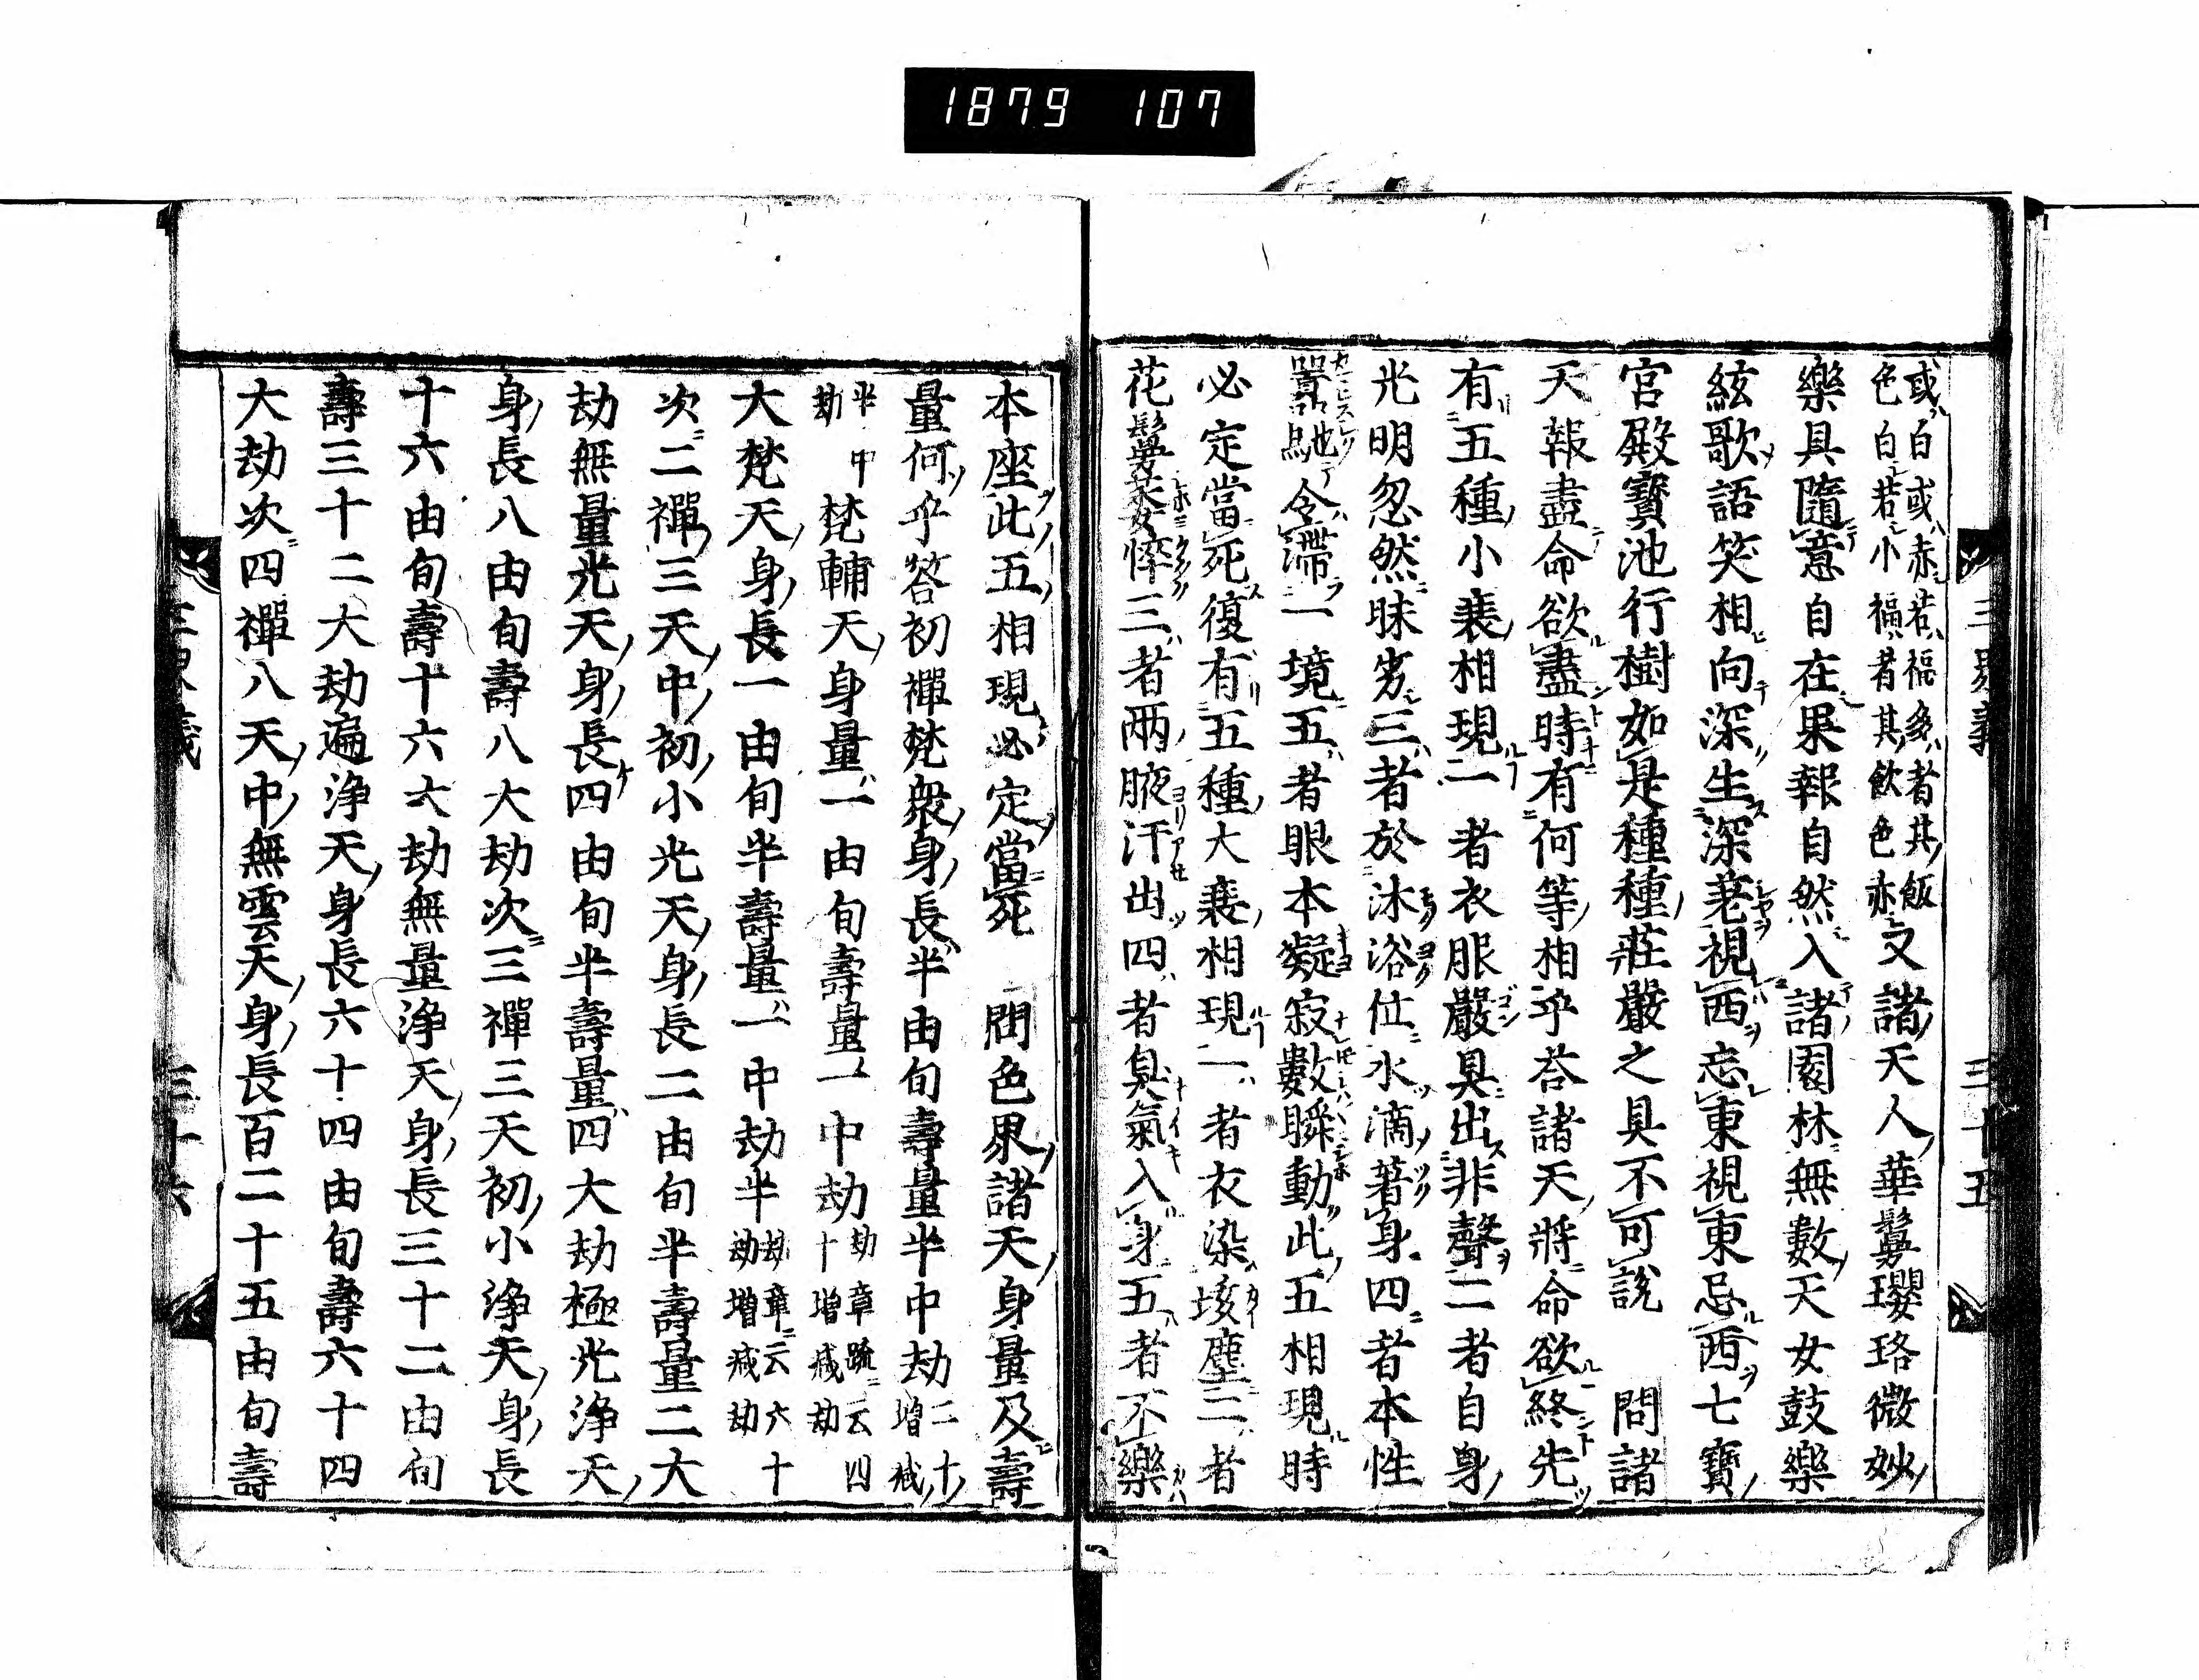 1879 107
三界義 三十五
或白或赤若福多者其飯
色白若小福者其飲色赤又諸天人華鬘瓔珞微妙
樂具隨意自在果報自然入諸園林無數天女鼓樂
絃歌語笑相向深生深著視西忘東視東忌西七寶
宮殿寶池行樹如是種種莊嚴之具不可說 問諸
天報盡命欲盡時有何等相乎荅諸天將命欲終先
有五種小衰相現一者衣服嚴具出非聲二者自身
光明忽然昧劣三者於沐浴位水滴著身四者本性
囂馳令滯一境五者眼本凝寂數瞬動此五相現時
必定當死復有五種大衰相現一者衣染埃塵二者
花鬘萎悴三者兩腋汗出四者臭氣入身五者不樂
本座此五相現必定當死 問色界諸天身量及壽
量何乎答初禪梵衆身長半由旬壽量半中劫二十増減
半中劫 梵輔天身量一由旬壽量一中劫劫章䟽云四十増減劫
大梵天身長一由旬半壽量一中劫半劫章云六十劫増減劫
次二禪三天中初小光天身長二由旬半壽量二大
劫無量光天身長四由旬半壽量四大劫極光淨天
身長八由旬壽八大劫次三禪三天初小淨天身長
十六由旬壽十六大劫無量淨天身長三十二由旬
壽三十二大劫遍淨天身長六十四由旬壽六十四
大劫次四禪八天中無雲天身長百二十五由旬壽
三界義 三十六